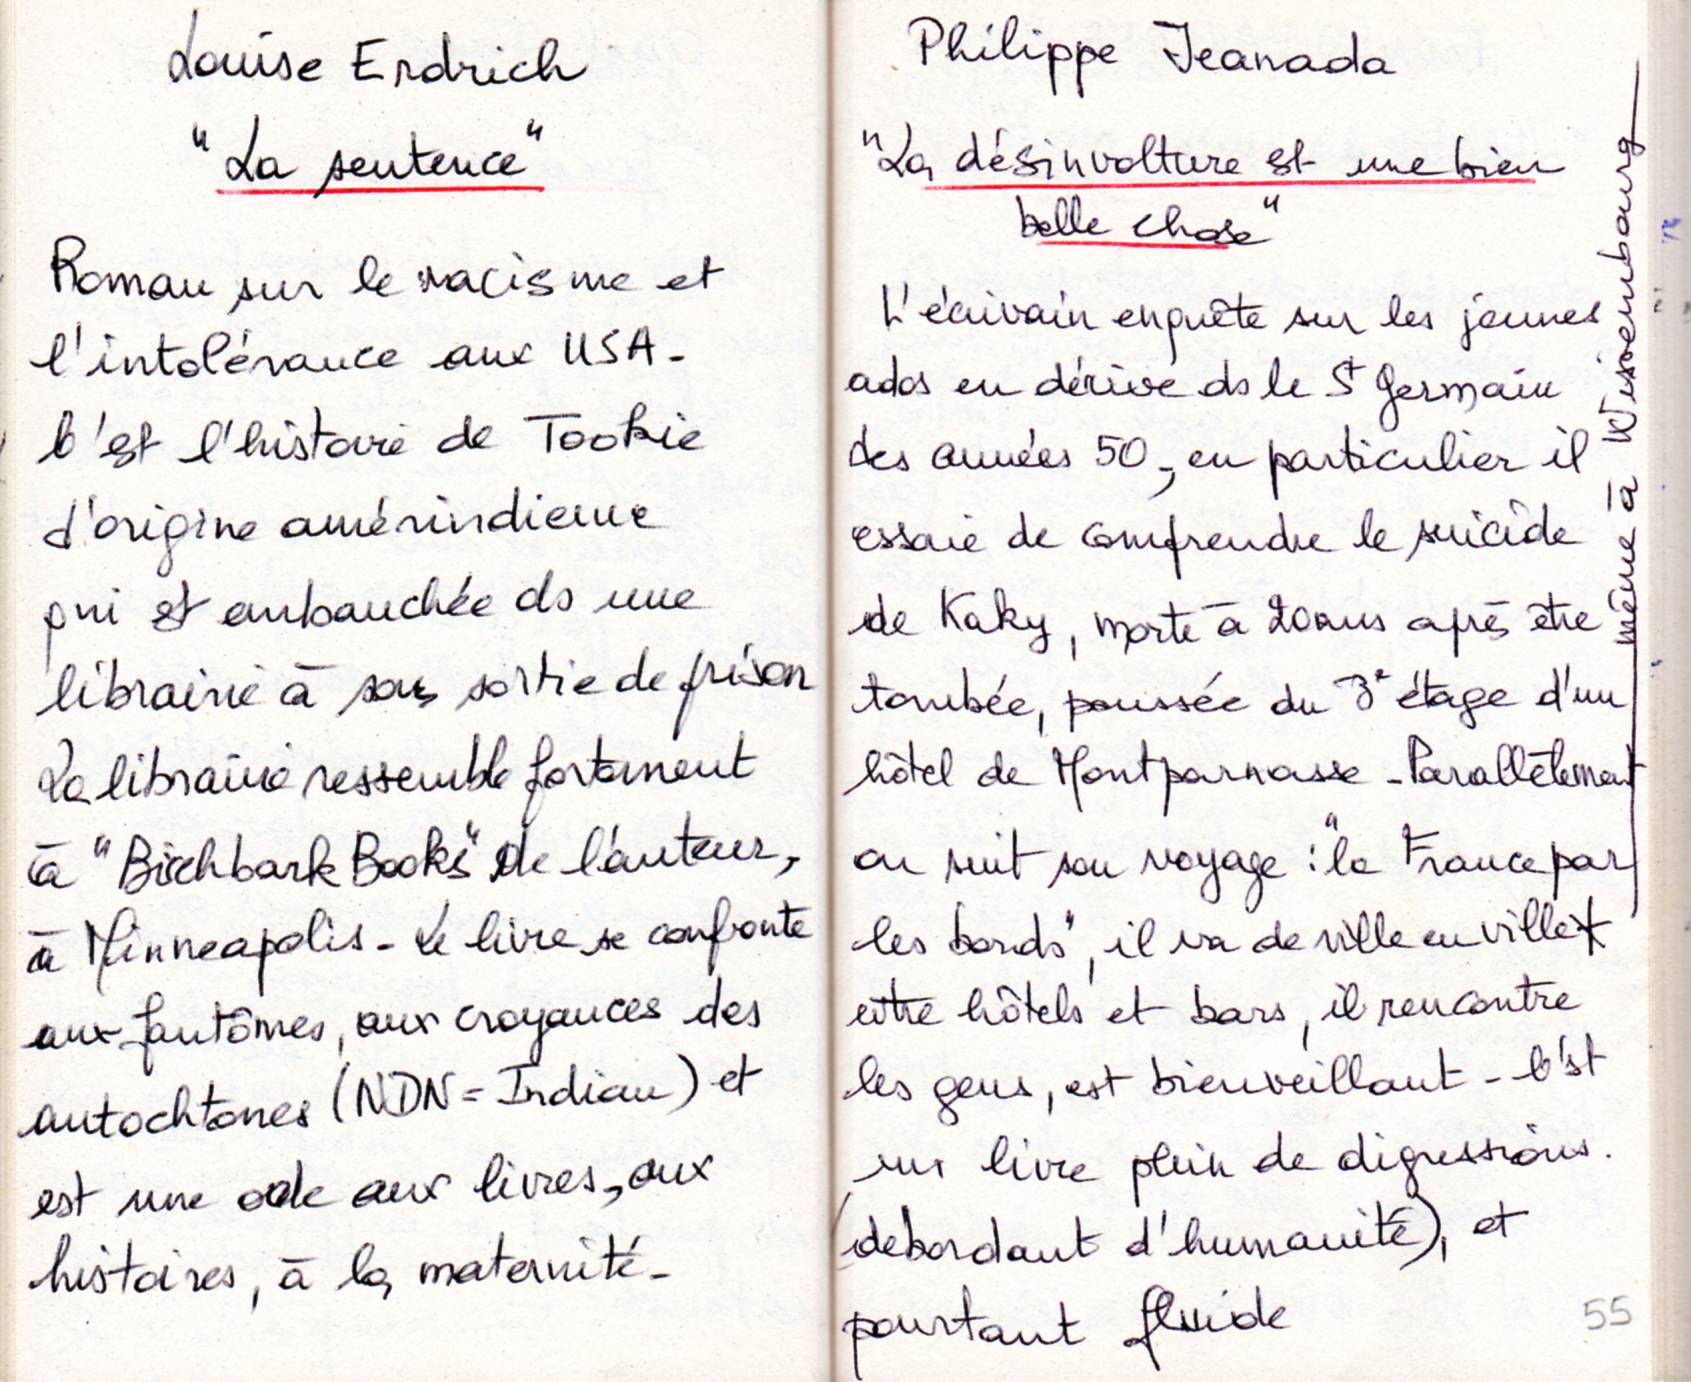 Louise Erdrich
"La sentence"
Roman sur le racisme et
l'intolérance aux USA -
C'est l'histoire de Tookie
d'origine amérindienne
qui est embauchée ds une
librairie à sa sortie de prison
La librairie ressemble fortement
à "Birchbark Books" de l'auteur,
à Minneapolis - Le livre se confronte
aux fantômes, aux croyances des
autochtones (NDN = Indian) et
est une ode aux livres, aux
histoires, à la maternité -
Philippe Jeanada
"La désinvolture est une bien
belle chose"
L'écrivain enquête sur les jeunes
ados en dérive ds le St Germain
des années 50, en particulier il
essaie de comprendre le suicide
de Kaky, morte à 20 ans après être
tombée, poussée du 3e étage d'un
hôtel de Montparnasse - Parallèlement
on suit son voyage : "la France par
les bords", il va de ville en ville *
entre hôtels et bars, il rencontre
les gens, est bienveillant - C'est
un livre plein de digressions.
(débordant d'humanité), et
pourtant fluide
même à Wissembourg
55